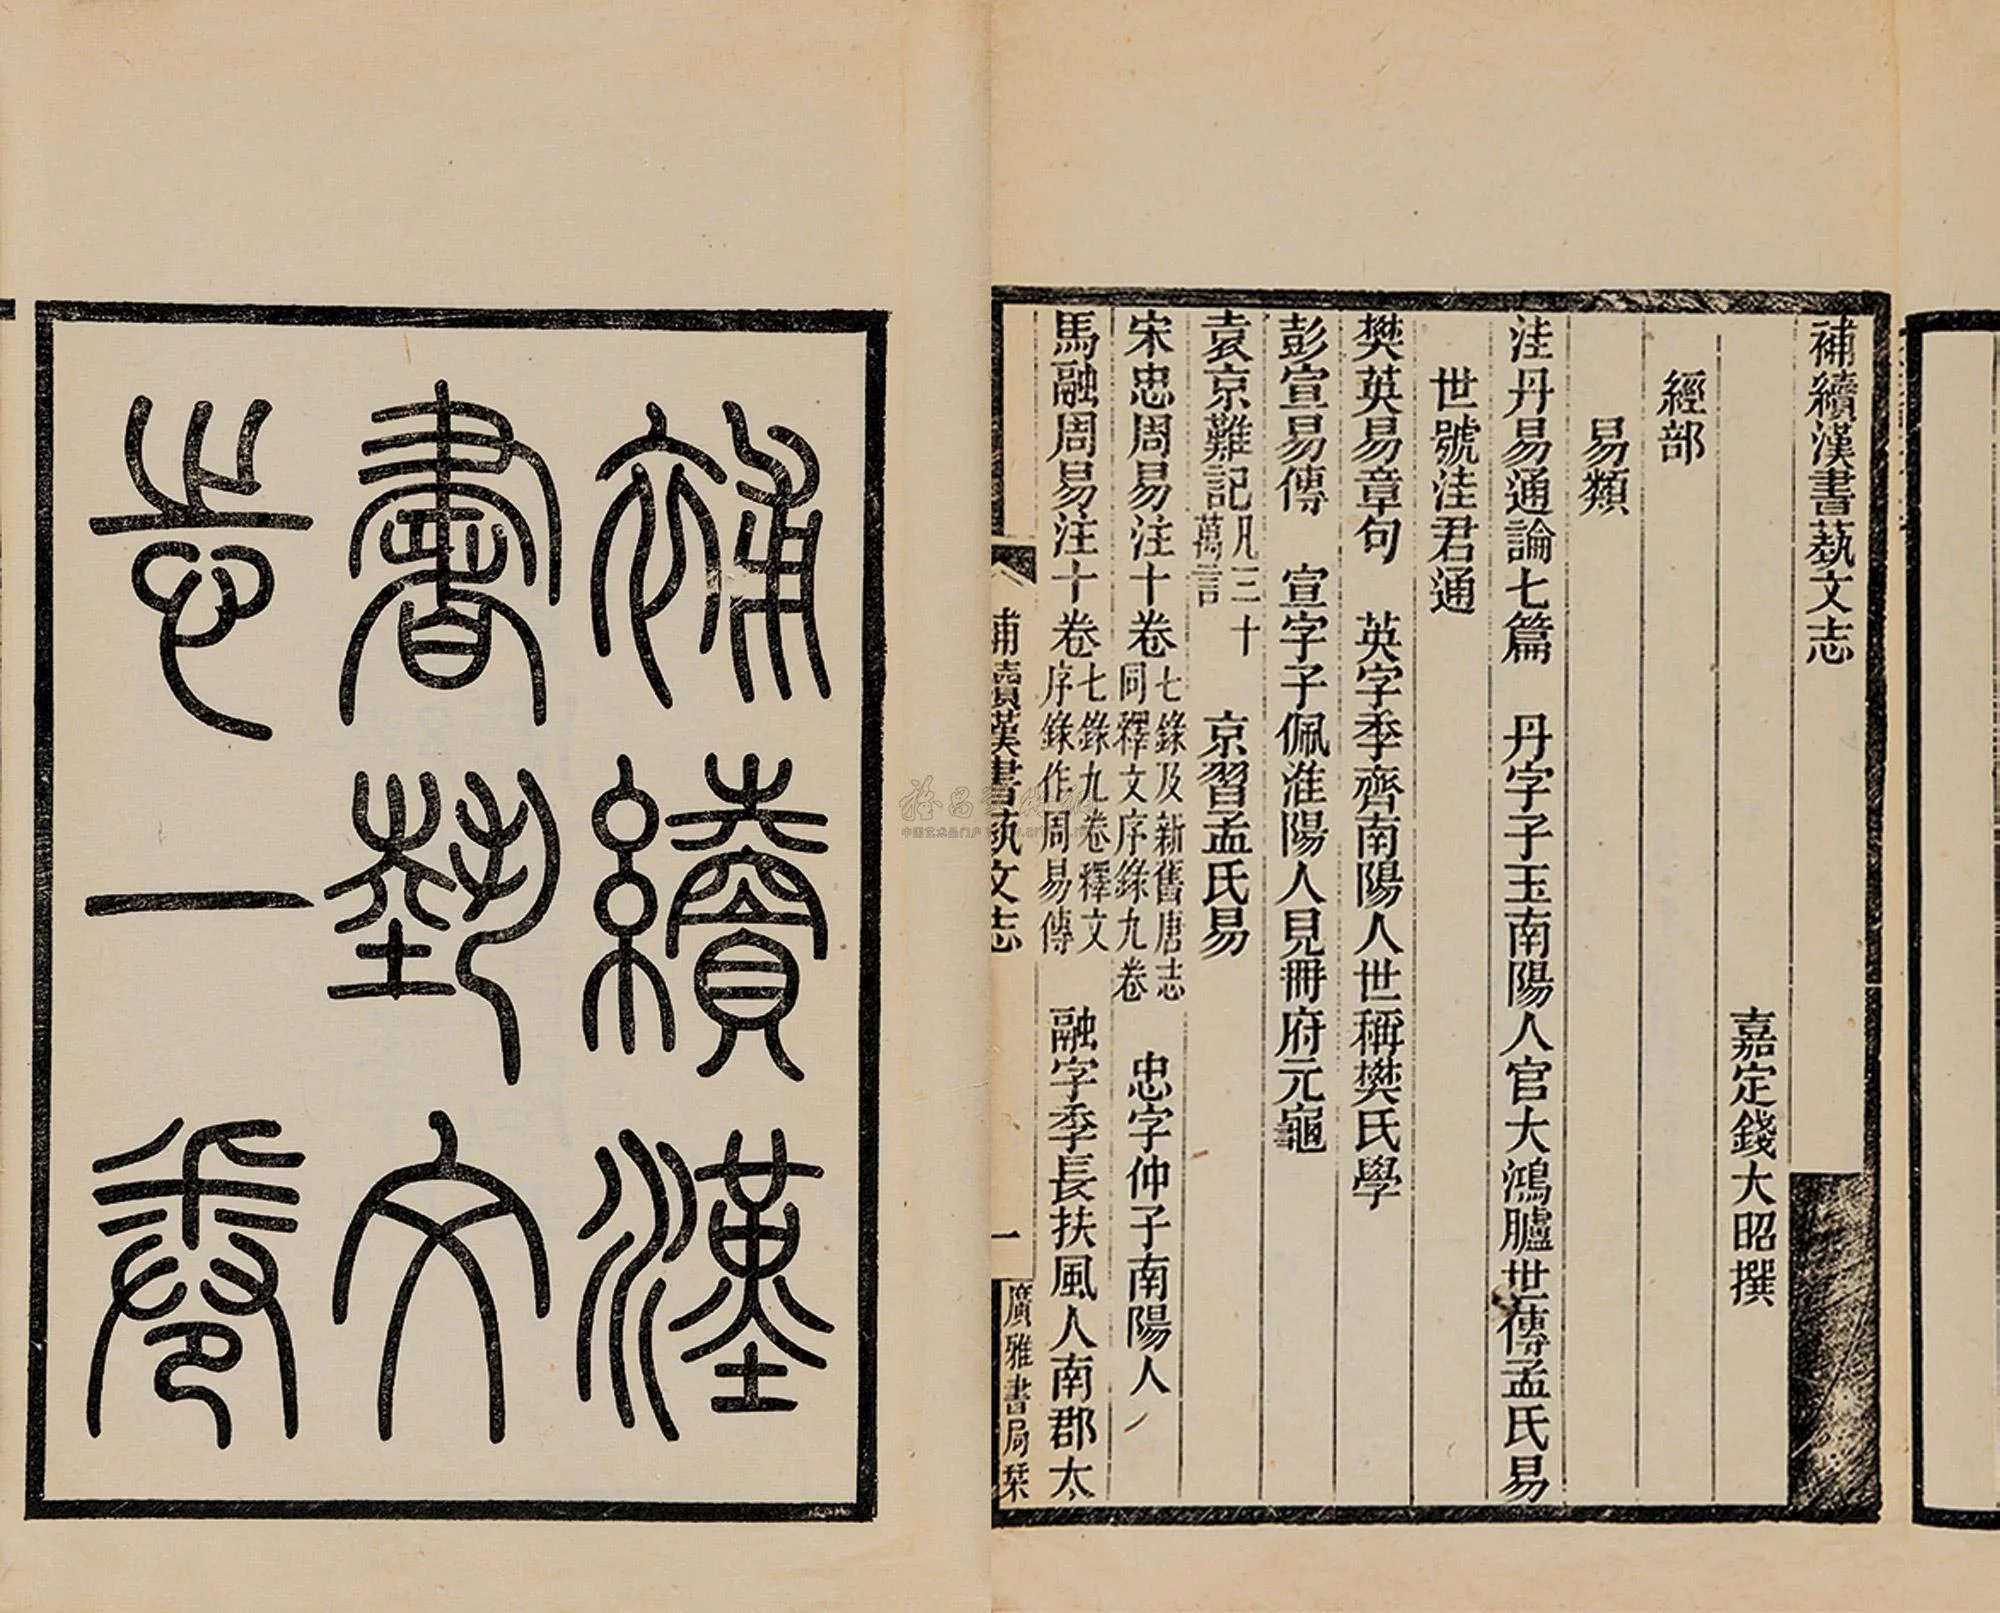 補續漢
書藝文
志一卷
補續漢書藝文志
嘉定錢大昭撰
經部
易類
洼丹易通論七篇　丹字子玉南陽人官大鴻臚世傳孟氏易
世號洼君通
樊英易章句　英字季齊南陽人世稱樊氏學
彭宣易傳　宣字子佩淮陽人見冊府元龜
袁京難記凡三十萬言　京習孟氏易
宋忠周易注十卷七錄及新舊唐志同釋文序錄九卷　忠字仲子南陽人
馬融周易注十卷七錄九卷釋文序錄作周易傳　融字季長扶風人南郡太
補續漢書藝文志　一　廣雅書局栞